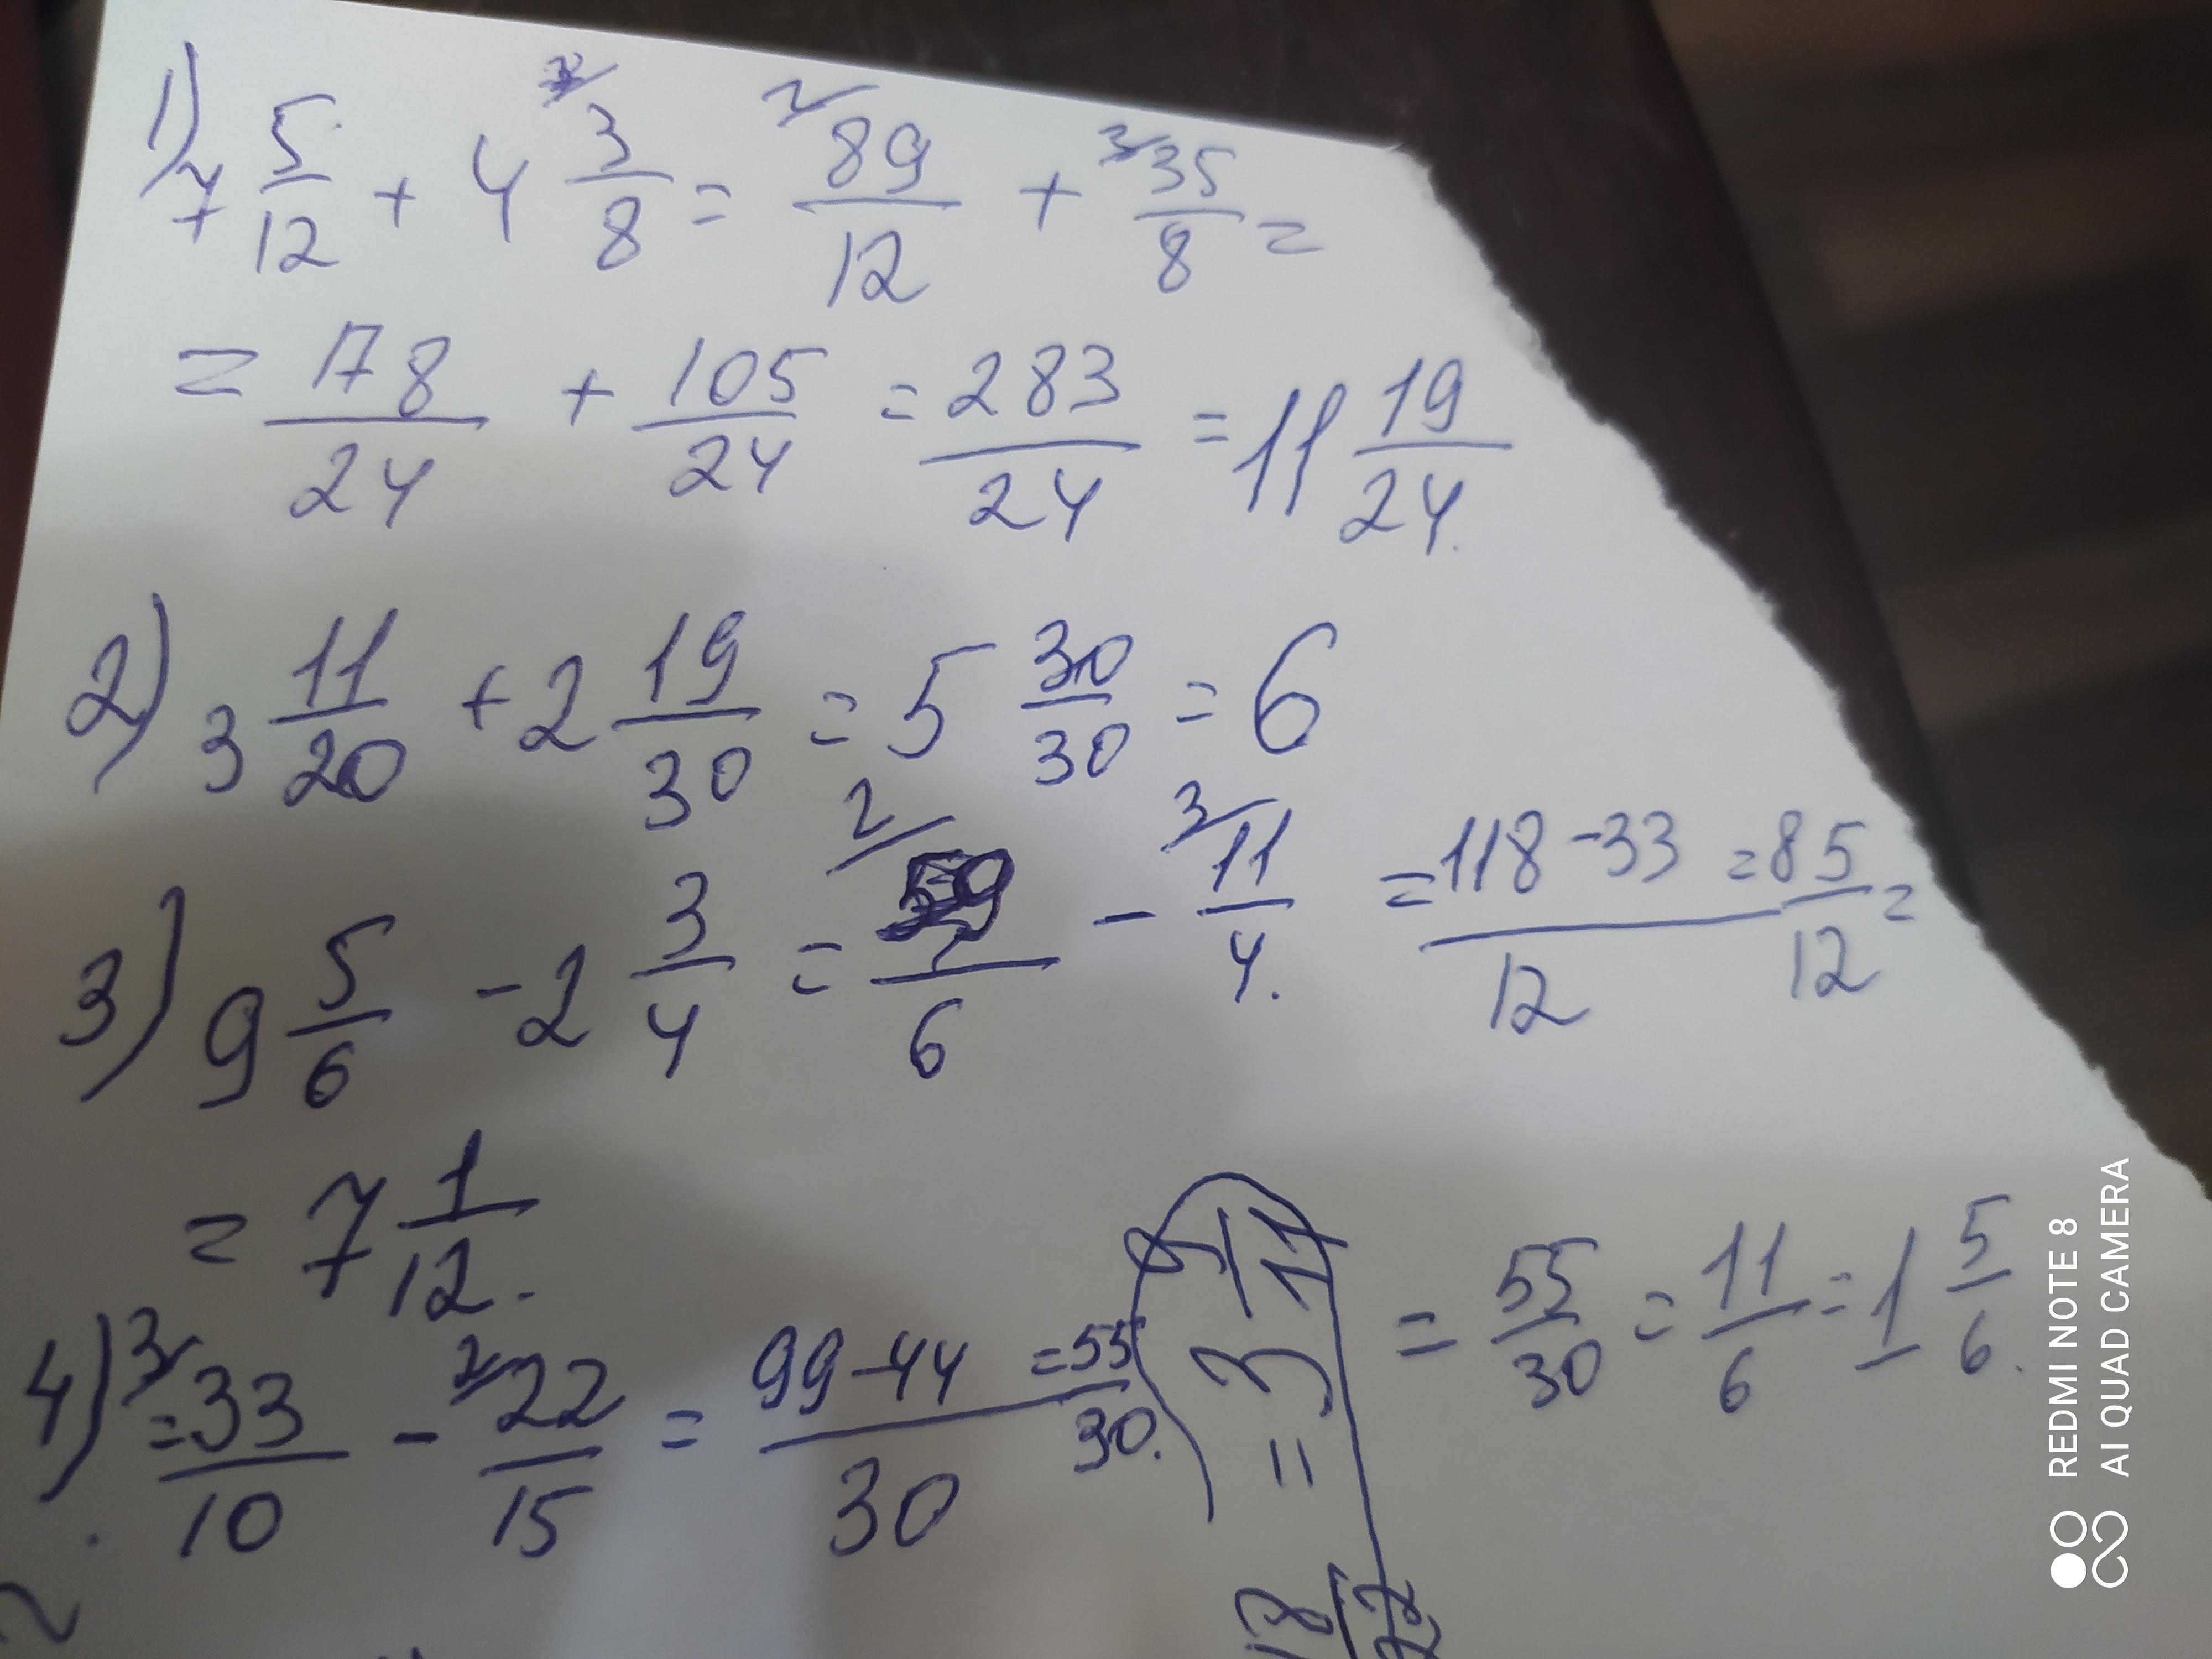 1) 7 5/12 + 4 3/8 = 2/ 89/12 + 3/ 35/8 =
= 178/24 + 105/24 = 283/24 = 11 19/24.
2) 3 11/20 + 2 19/30 = 5 30/30 = 6
3) 9 5/6 - 2 3/4 = 2/ 59/6 - 3/ 11/4. = 118-33/12 = 85/12 =
= 7 1/12.
4) = 3/ 33/10 - 2/ 22/15 = 99-44/30 = 55/30. = 55/30 = 11/6 = 1 5/6.
REDMI NOTE 8
AI QUAD CAMERA